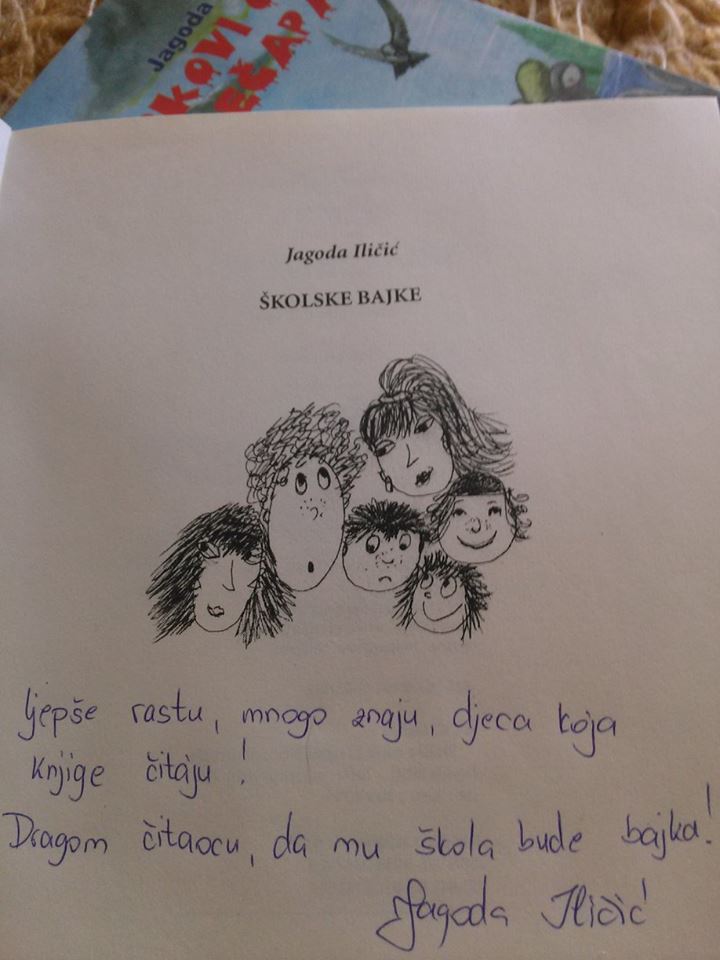 Jagoda
Jagoda Iličić
ŠKOLSKE BAJKE
ljepše rastu, mnogo znaju, djeca koja
knjige čitaju!
Dragom čitaocu, da mu škola bude bajka!
Jagoda Iličić